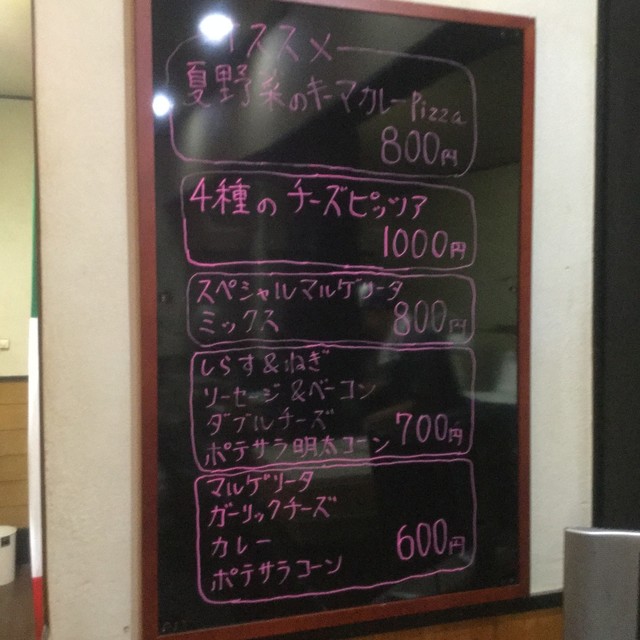 オススメ
夏野菜のキーマカレーPizza
800円
4種のチーズピッツァ
1000円
スペシャルマルゲリータ
ミックス 800円
しらす&ねぎ
ソーセージ&ベーコン
ダブルチーズ
ポテサラ明太コーン 700円
マルゲリータ
ガーリックチーズ
カレー 600円
ポテサラコーン